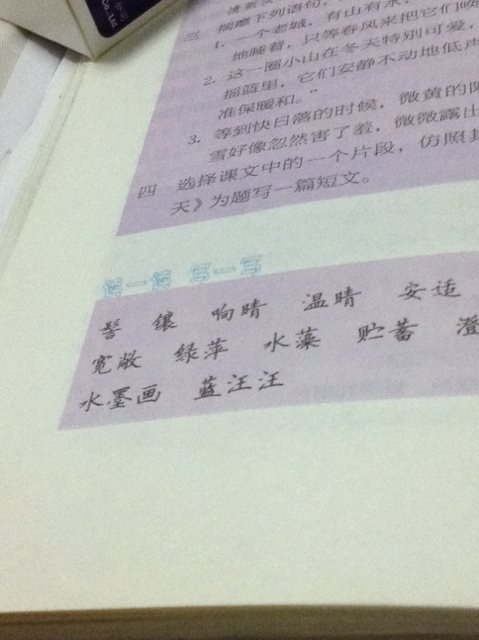 三 揣摩下列语句,
1. 一个老城，有山有水，
地睡着，只等春风来把它们
2. 这一圈小山在冬天特别可爱，
摇篮里，它们安静不动地低声
准保暖和。”
3. 等到快日落的时候，微黄的阳
雪好像忽然害了羞，微微露出
四 选择课文中的一个片段，仿照
天》为题写一篇短文。
读一读 写一写
髻 镶 响晴 温晴 安适
宽敞 绿萍 水藻 贮蓄 澄
水墨画 蓝汪汪
Co.,Ltd